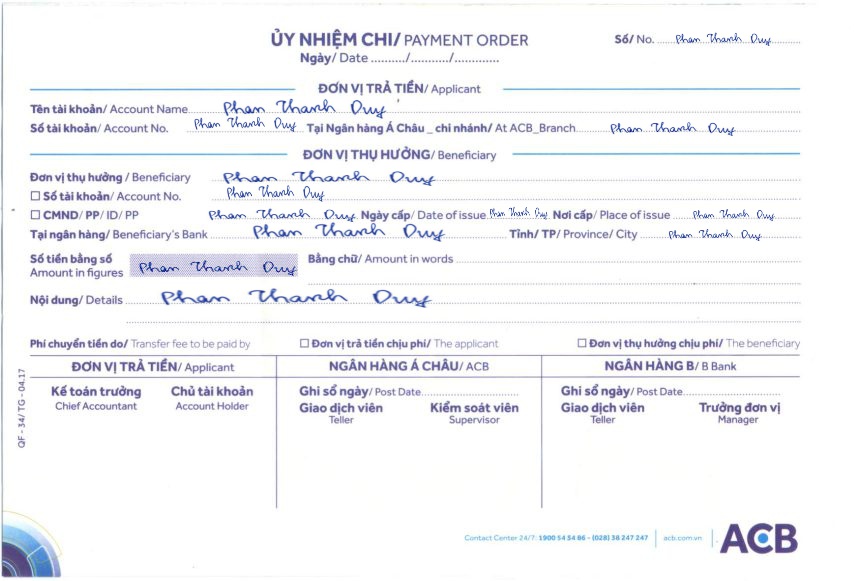 ỦY NHIỆM CHI/ PAYMENT ORDER
Số/ No. Phan Thanh Duy
Ngày/ Date ........../.........../.............
ĐƠN VỊ TRẢ TIỀN/ Applicant
Tên tài khoản/ Account Name Phan Thanh Duy
Số tài khoản/ Account No. Phan Thanh Duy Tại Ngân hàng Á Châu _ chi nhánh/ At ACB_Branch Phan Thanh Duy
ĐƠN VỊ THỤ HƯỞNG/ Beneficiary
Đơn vị thụ hưởng / Beneficiary Phan Thanh Duy
☐ Số tài khoản/ Account No. Phan Thanh Duy
☐ CMND/ PP/ ID/ PP Phan Thanh Duy Ngày cấp/ Date of issue Phan Thanh Duy Nơi cấp/ Place of issue Phan Thanh Duy
Tại ngân hàng/ Beneficiary's Bank Phan Thanh Duy Tỉnh/ TP/ Province/ City Phan Thanh Duy
Số tiền bằng số Phan Thanh Duy Bằng chữ/ Amount in words
Amount in figures
Nội dung/ Details Phan Thanh Duy
Phí chuyển tiền do/ Transfer fee to be paid by ☐ Đơn vị trả tiền chịu phí/ The applicant ☐ Đơn vị thụ hưởng chịu phí/ The beneficiary
ĐƠN VỊ TRẢ TIỀN/ Applicant NGÂN HÀNG Á CHÂU/ ACB NGÂN HÀNG B/ B Bank
Kế toán trưởng Chủ tài khoản Ghi sổ ngày/ Post Date Ghi sổ ngày/ Post Date
Chief Accountant Account Holder Giao dịch viên Kiểm soát viên Giao dịch viên Trưởng đơn vị
Teller Supervisor Teller Manager
QF - 34/ TG - 04.17
Contact Center 24/7: 1900 54 54 86 - (028) 38 247 247 acb.com.vn ACB